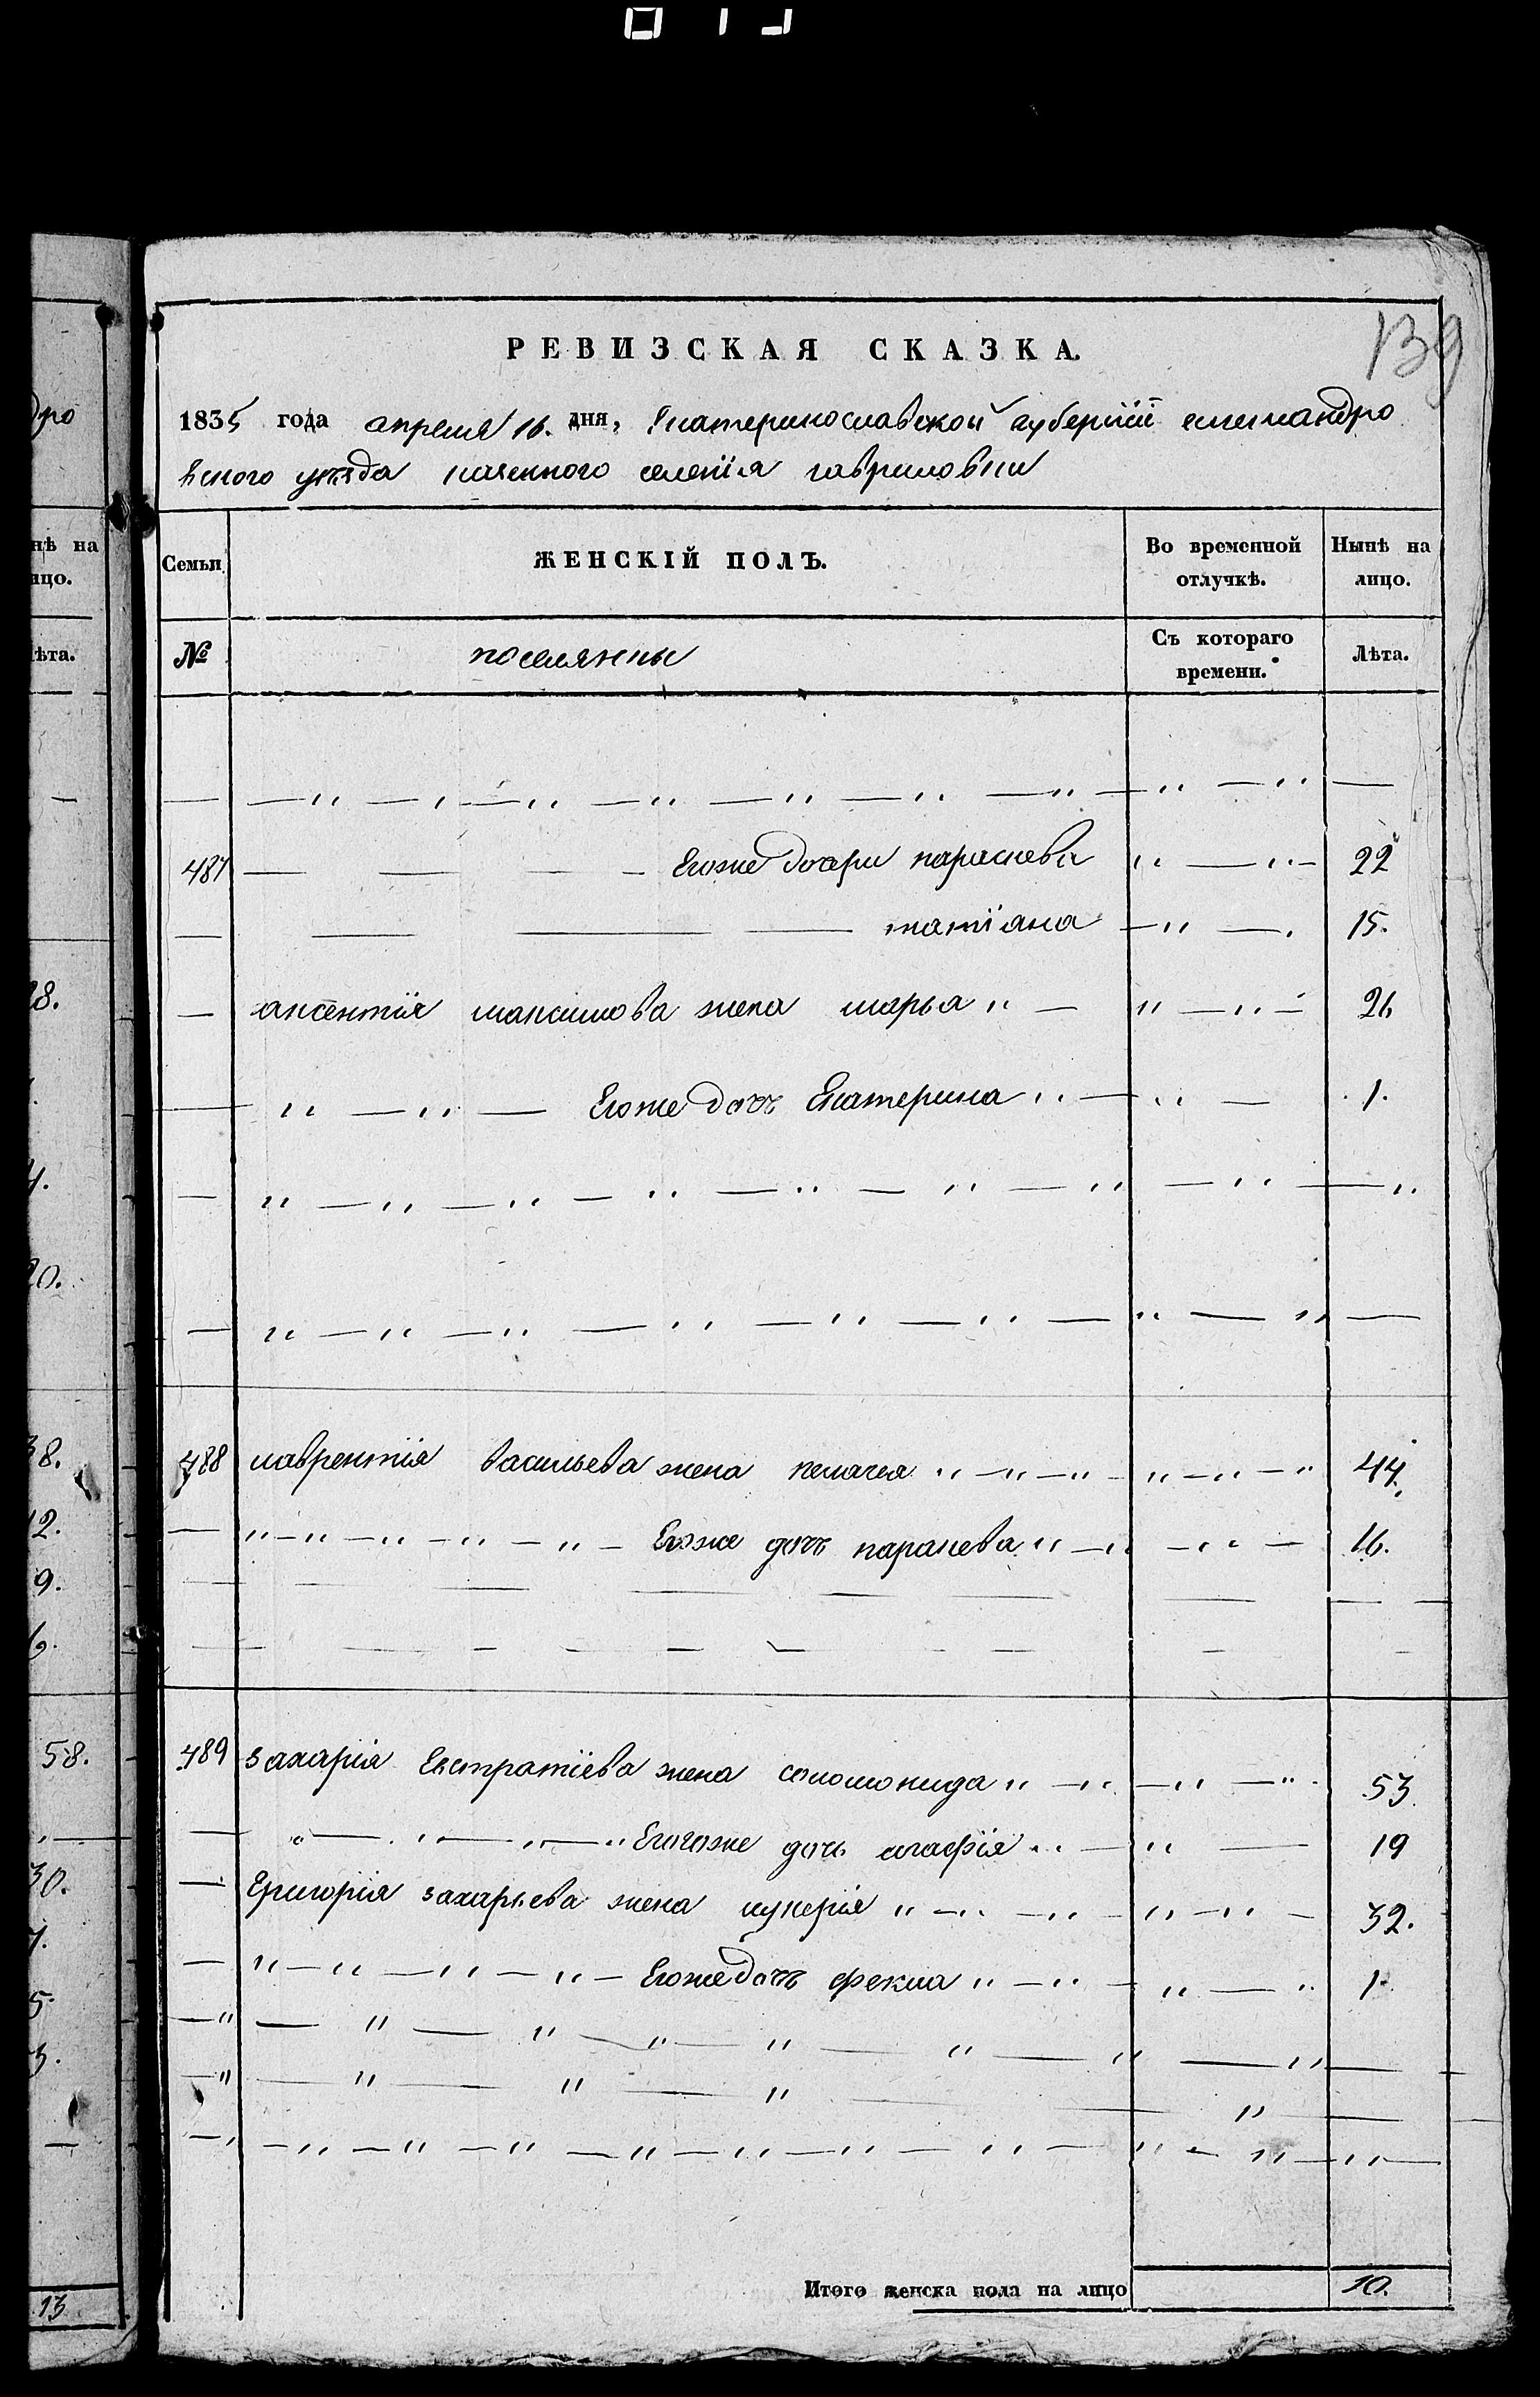 139
РЕВИЗСКАЯ СКАЗКА.
1835 года апреля 16. дня, Екатеринославской губерніи александро
вского уезда казенного селенія гавриловки
Семьи ЖЕНСКІЙ ПОЛЪ. Во временной отлучкѣ. Нынѣ на лицо.
№ поселяжны Съ котораго времени. Лѣта.
487 Егоже дочери парасиева 22
татіана 15.
аксентія максимова жена марья 26
Егоже дочъ Екатерина 1.
488 лаврентія васильева жена пелагея 44.
Егоже дочъ параскева 16.
489 захарія Евстратіева жена соломонида 53
Егогоже дочь агафія 19
Григорія захарьева жена лукерія 32.
Егоже дочъ фекла 1
Итого женска пола на лицо 10.
дро
нѣ на
ицо.
ѣта.
28.
4.
20.
38.
12.
9.
6.
58.
30.
5.
3.
13